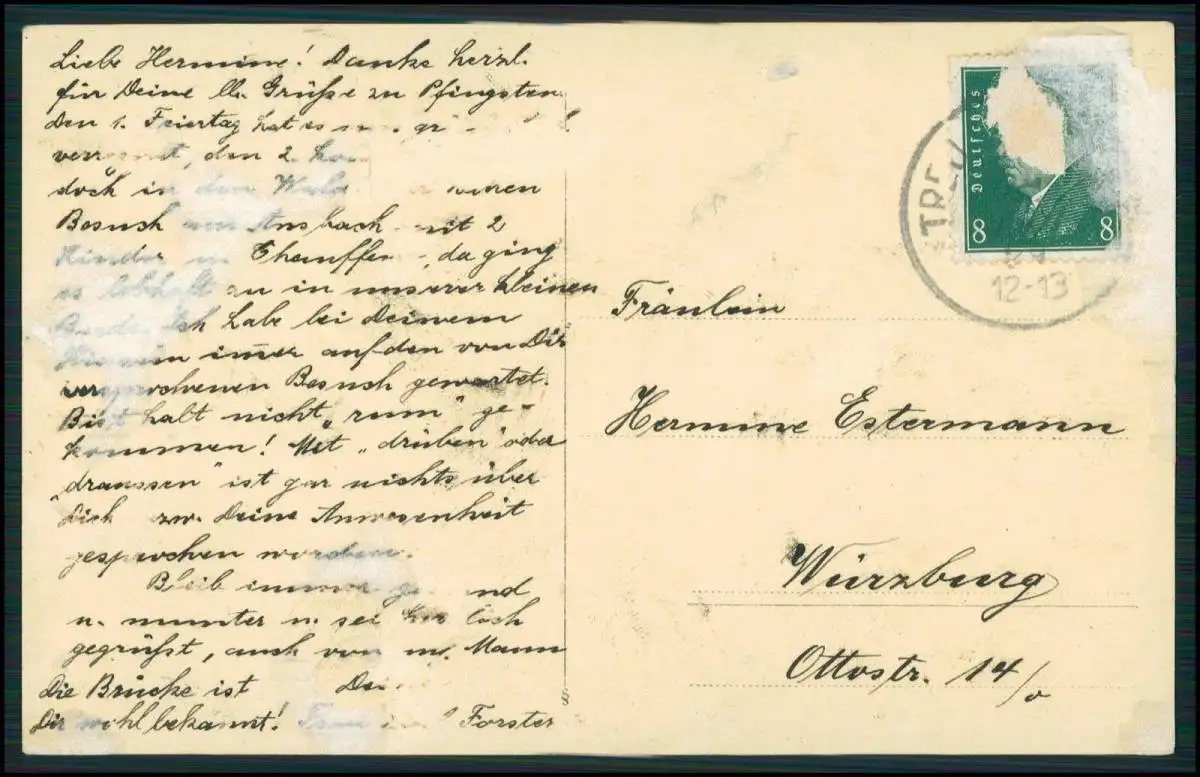 Liebe Hermine! Danke herzl.
für Deine lb. Grüße zu Pfingsten.
Den 1. Feiertag hat es
den 2.
doch in den
Besuch von Ansbach mit 2
Kinder Chauffeu , da ging
es lebhaft zu in unserer kleinen
Ich habe bei Deinem
immer auf den von Dir
versprochenen Besuch gewartet.
Bist halt nicht „rum" ge-
kommen! Mit „drüben" oder
„draussen" ist gar nichts über
Dich bzw. Deine Anwesenheit
gesprochen worden.
Bleib immer ge nd
u. munter u. sei herzlich
gegrüßt, auch von m. Mann
Die Brücke ist
Dir wohl bekannt! Forster
Deutsches
8 8
12-13
Fräulein
Hermine Estermann
Würzburg
Ottostr. 14/0